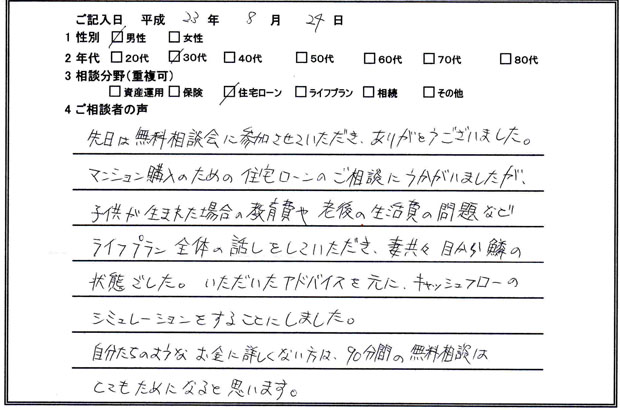 ご記入日 平成 23 年 8 月 24 日
1 性別 ☑男性 □女性
2 年代 □20代 ☑30代 □40代 □50代 □60代 □70代 □80代
3 相談分野(重複可)
□資産運用 □保険 ☑住宅ローン □ライフプラン □相続 □その他
4 ご相談者の声
先日は無料相談会に参加させていただき、ありがとうございました。
マンション購入のための住宅ローンのご相談にうかがいましたが、
子供が生まれた場合の教育費や老後の生活費の問題など
ライフプラン全体の話しをしていただき、妻共々目から鱗の
状態でした。いただいたアドバイスを元に、キャッシュフローの
シミュレーションをすることにしました。
自分たちのようなお金に詳しくない方は、90分間の無料相談は
とてもためになると思います。